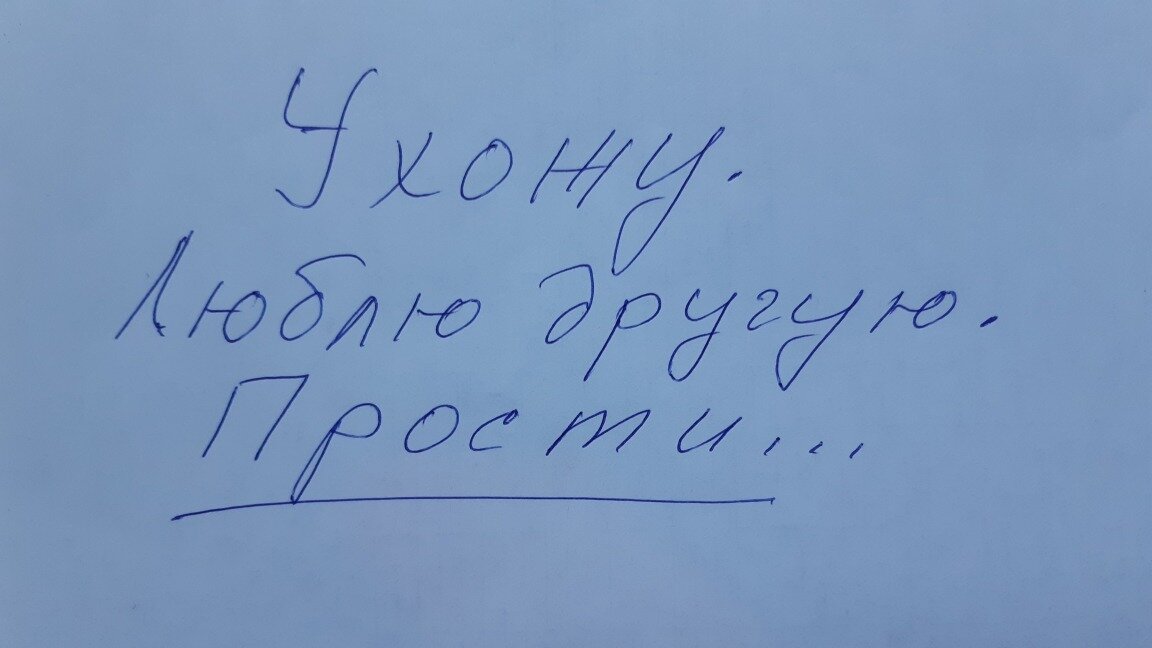 Ухожу.
Люблю другую.
Прости...